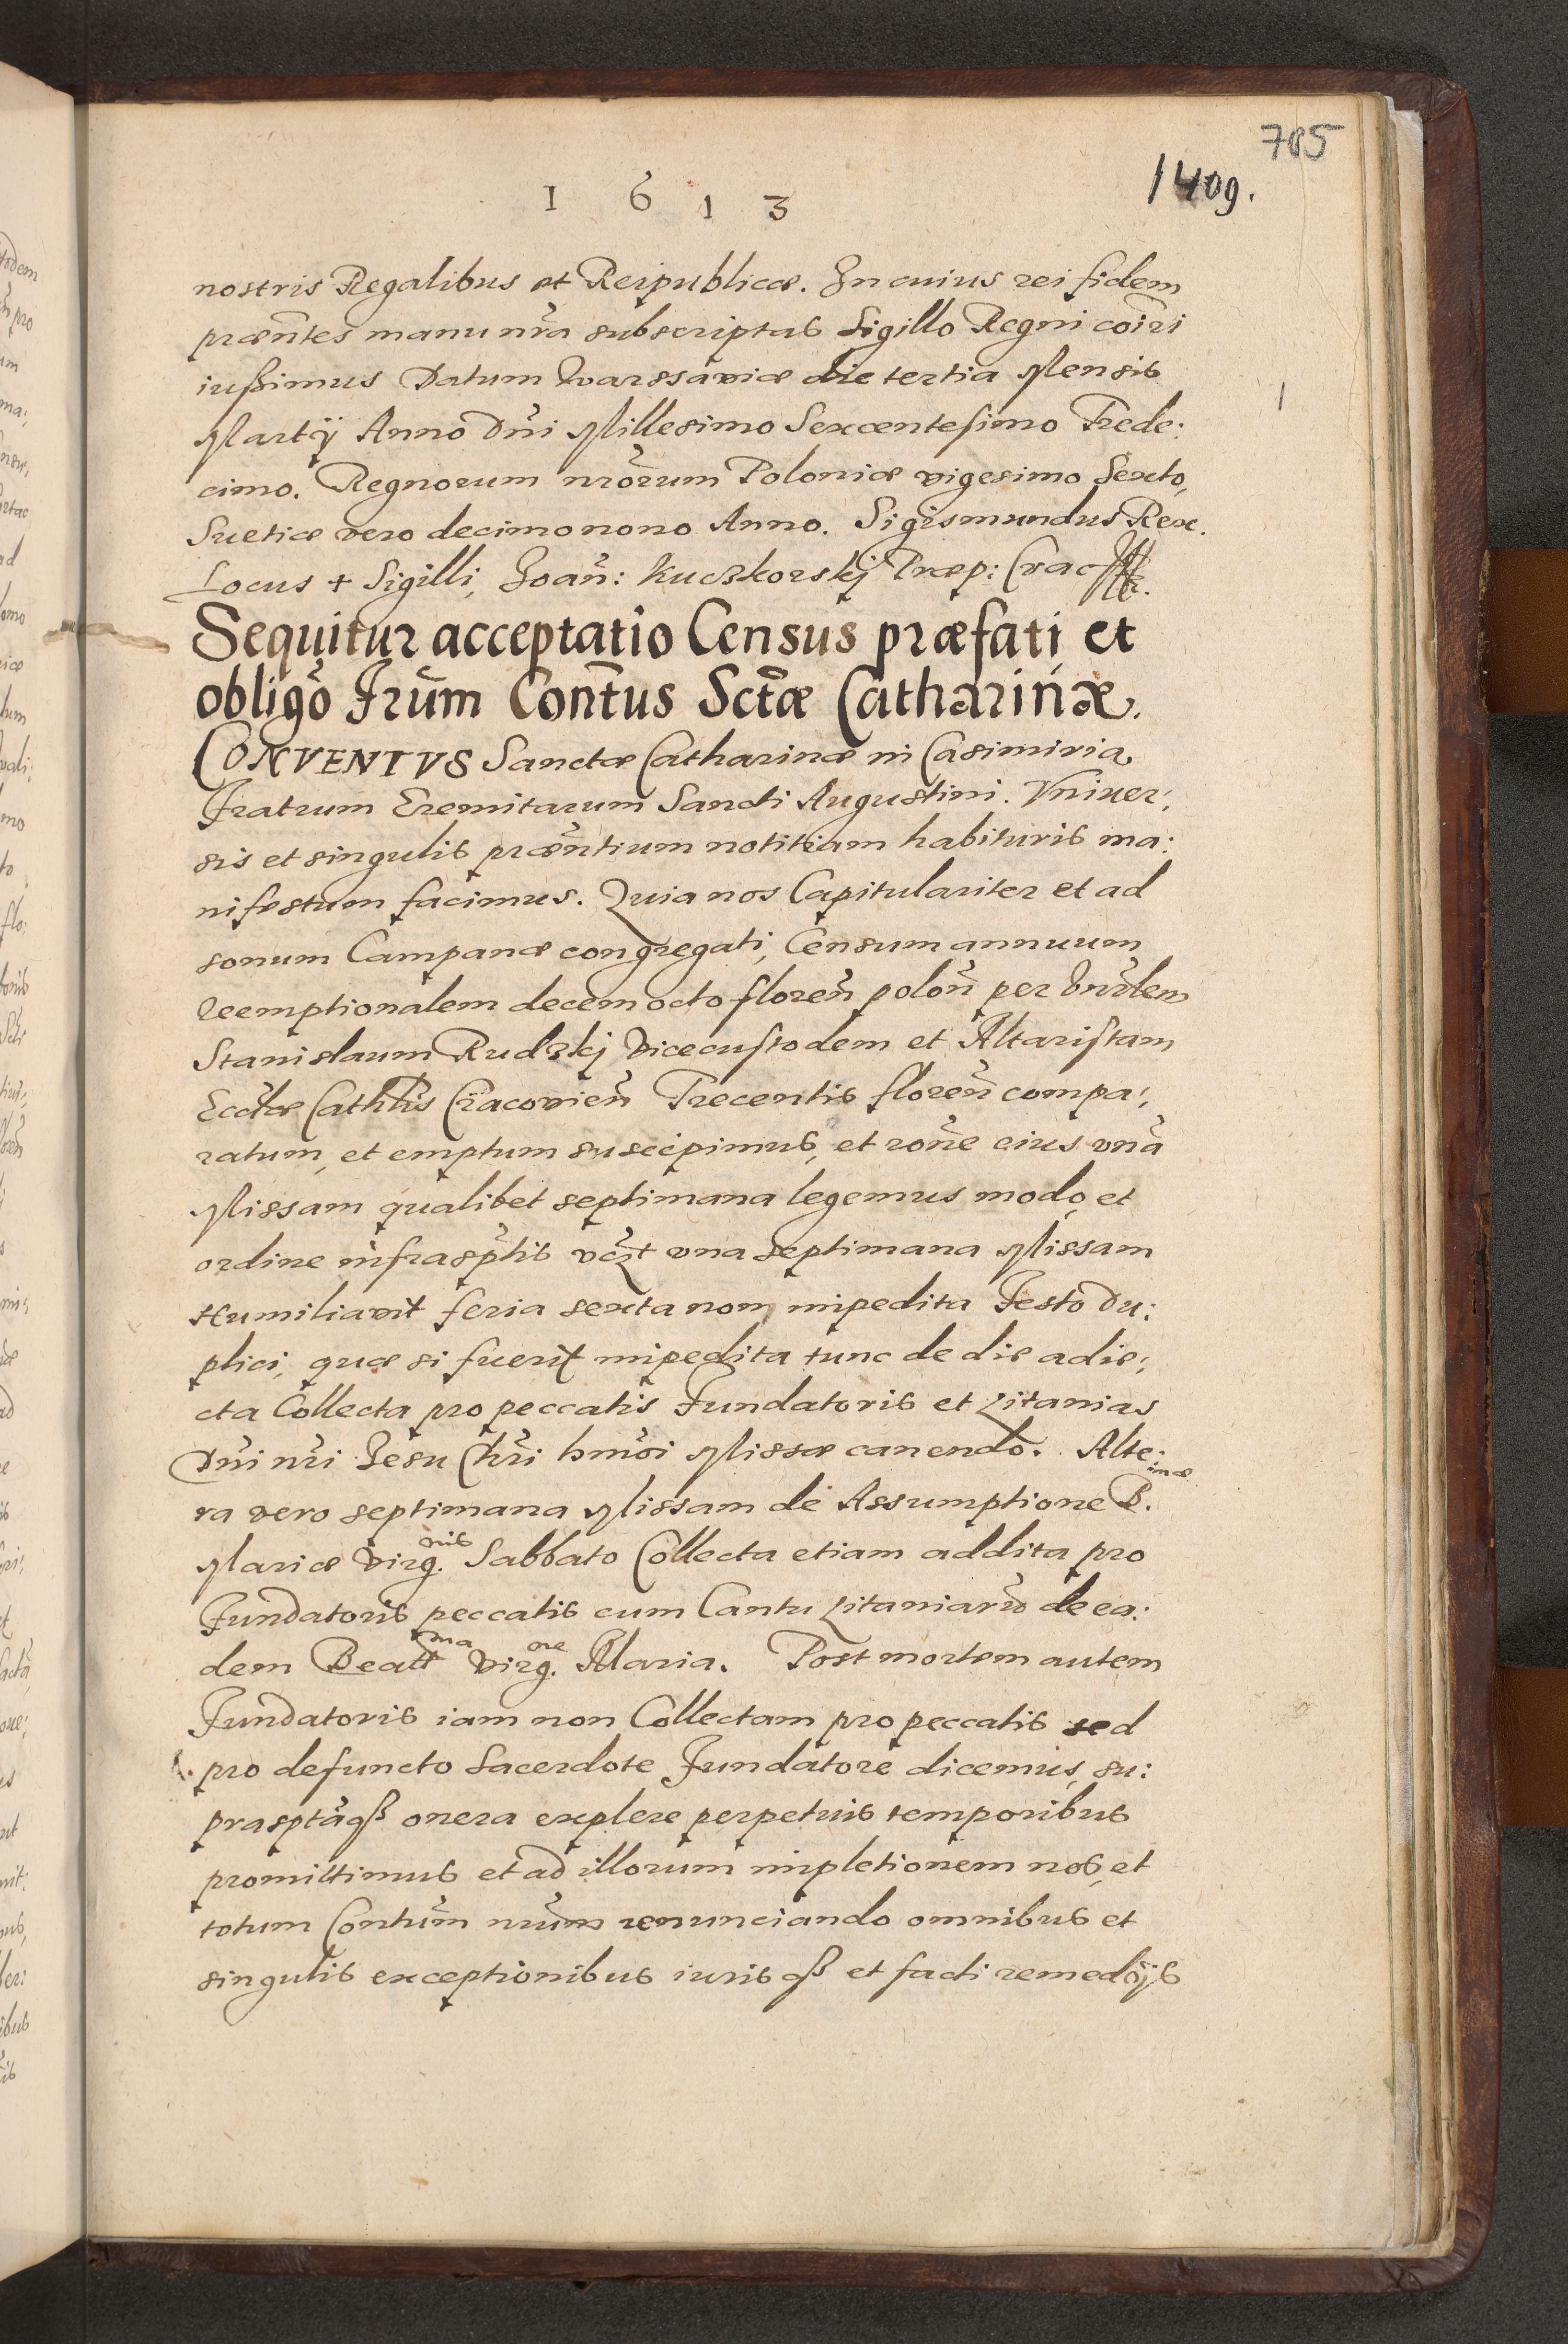 785
1409.
1 6 1 3
nostris Regalibus et Reipublicæ. In cuius rei fidem
præñtes manu nr̃a subscriptas Sigillo Regni coĩri
iußimus Datum Warssaviæ die tertia Mensis
Martij Anno Dñi Millesimo Sexcentesimo Trede:
cimo. Regnorum nrõrum Poloniæ vigesimo Sexto,
Suetiæ vero decimo nono Anno. Sigismundus Rex.
Locus + Sigilli, Joañ: Kuczkorskj Præp: Crac
Sequitur acceptatio Census præfati et
obligõ Frũm Con̄tus Sctæ Catharinæ.
CONVENTVS Sanctæ Catharinæ in Casimiria
Fratrum Eremitarum Sancti Augustini. Vniuer:
sis et singulis præñtium notitiam habituris ma:
nifestum facimus. Quia nos Capitulariter et ad
sonum Campanæ congregati, Censum annuum
reemptionalem decem octo floreñ poloñ per Vnr̃lem
Stanislaum Rudzkj Vicecustodem et Altaristam
Eccl̃æ Cathl̃is Cracovieñ Trecentis floreñ compa:
ratum, et emptum suscepimus, et rõne eius vnã
Missam qualibet septimana legemus modo, et
ordine infrasp̃tis vcz̃t vna septimana Missam
Humiliavit feria sexta non impedita Festo du:
plici, quæ si fuerit impedita tunc de die adie:
cta Collecta pro peccatis Fundatoris et Litanias
Dñi nr̃i Jesu Chr̃i hmõi Missæ canendo. Alte:
ra vero septimana Missam de Assumptione B.imæ
Mariæ Virg.nis Sabbato Collecta etiam addita pro
Fundatoris peccatis cum Cantu Litaniarũ de ea:
dem Beattma Virg.ne Maria. Post mortem autem
Fundatoris iam non Collectam pro peccatis sed
pro defuncto Sacerdote Fundatore dicemus, su:
prasptãqß onera explere perpetuis temporibus
promittimus et ad illorum impletionem nos, et
totum Contũm nrũm renunciando omnibus et
singulis exceptionibus iuris qß et facti remedijs